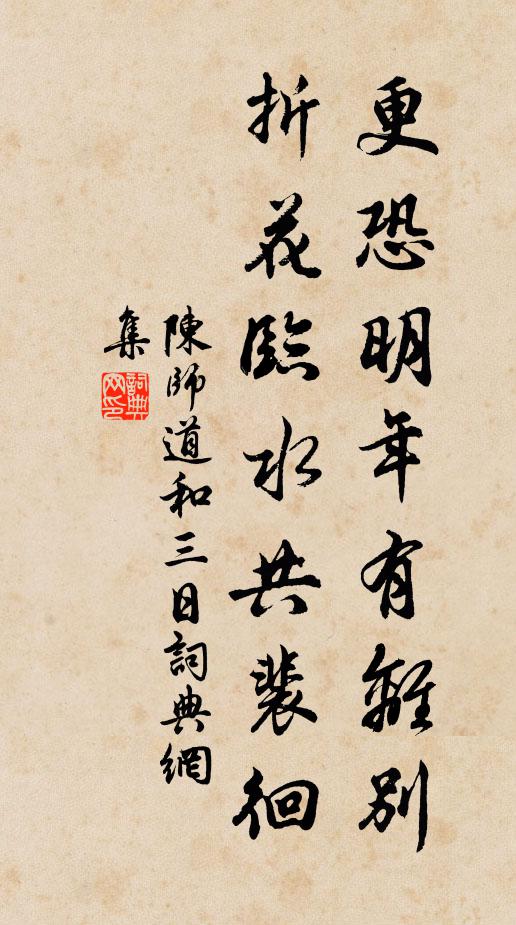 更恐明年有離別
折花臨水共裴徊
陳師道和三日詞典網
集
詞典
网印